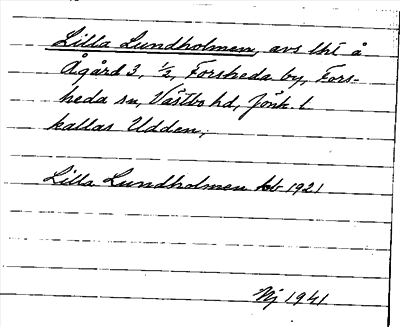 Lilla Lundholmen, avs lht å
Ågård 3, 1/2, Forsheda by, Fors-
heda sn, Västbo hd, Jönk l
kallas Udden;
Lilla Lundholmen kb 1921
Nj 1941